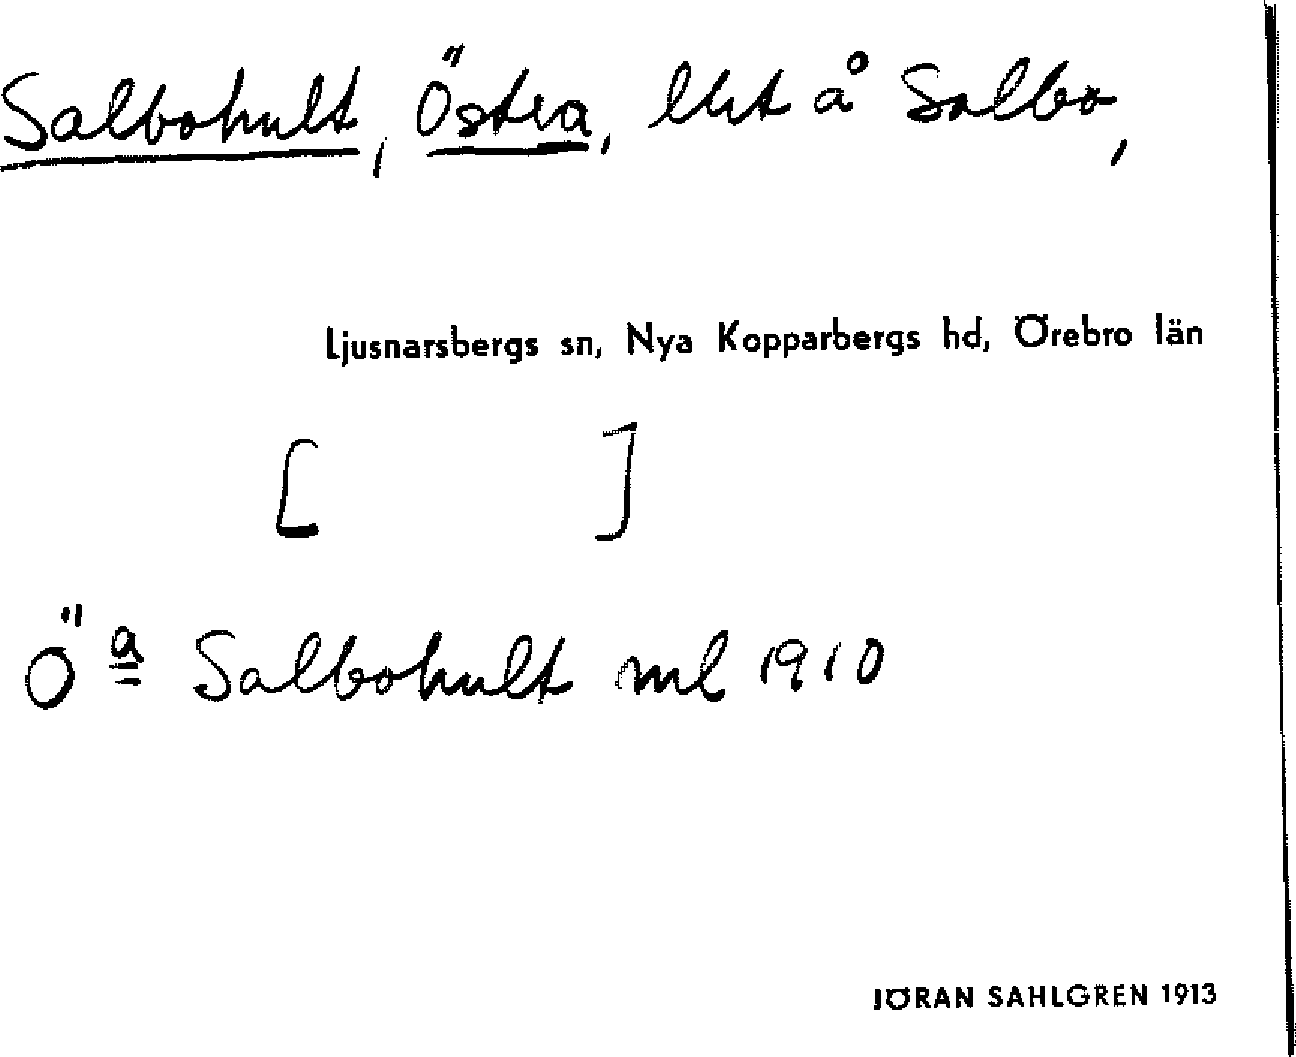 Salbohult, Östra, lht å Salbo,
Ljusnarsbergs sn, Nya Kopparbergs hd, Örebro län
[ ]
Ö a Salbohult ml 1910
JÖRAN SAHLGREN 1913